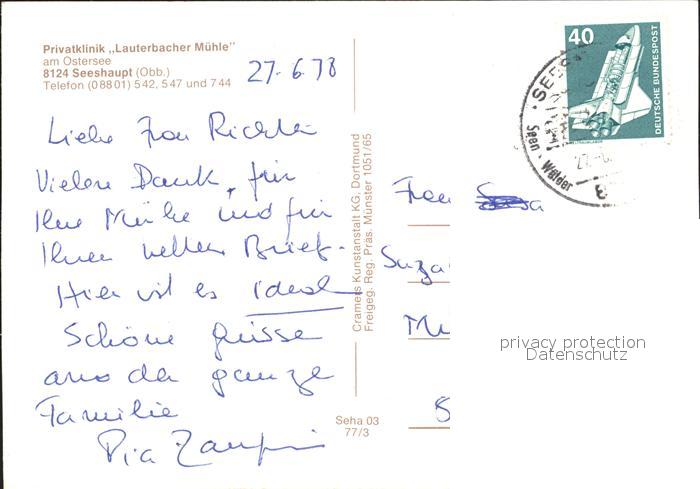 Privatklinik „Lauterbacher Mühle"
am Ostersee
8124 Seeshaupt (Obb.)
Telefon (08801) 542, 547 und 744
27.6.78
Liebe Frau Richter
Vielen Dank, für
Ihre Mühe und für
Ihren netten Brief.
Hier ist es ideal
Schöne Grüsse
aus der ganze
Familie
Pia
Cramers Kunstanstalt KG, Dortmund
Freigeg. Reg. Präs. Münster 1051/65
Seha 03
77/3
40
DEUTSCHE BUNDESPOST
Seen · Wälder
Frau
Suza
Mü
5
privacy protection
Datenschutz